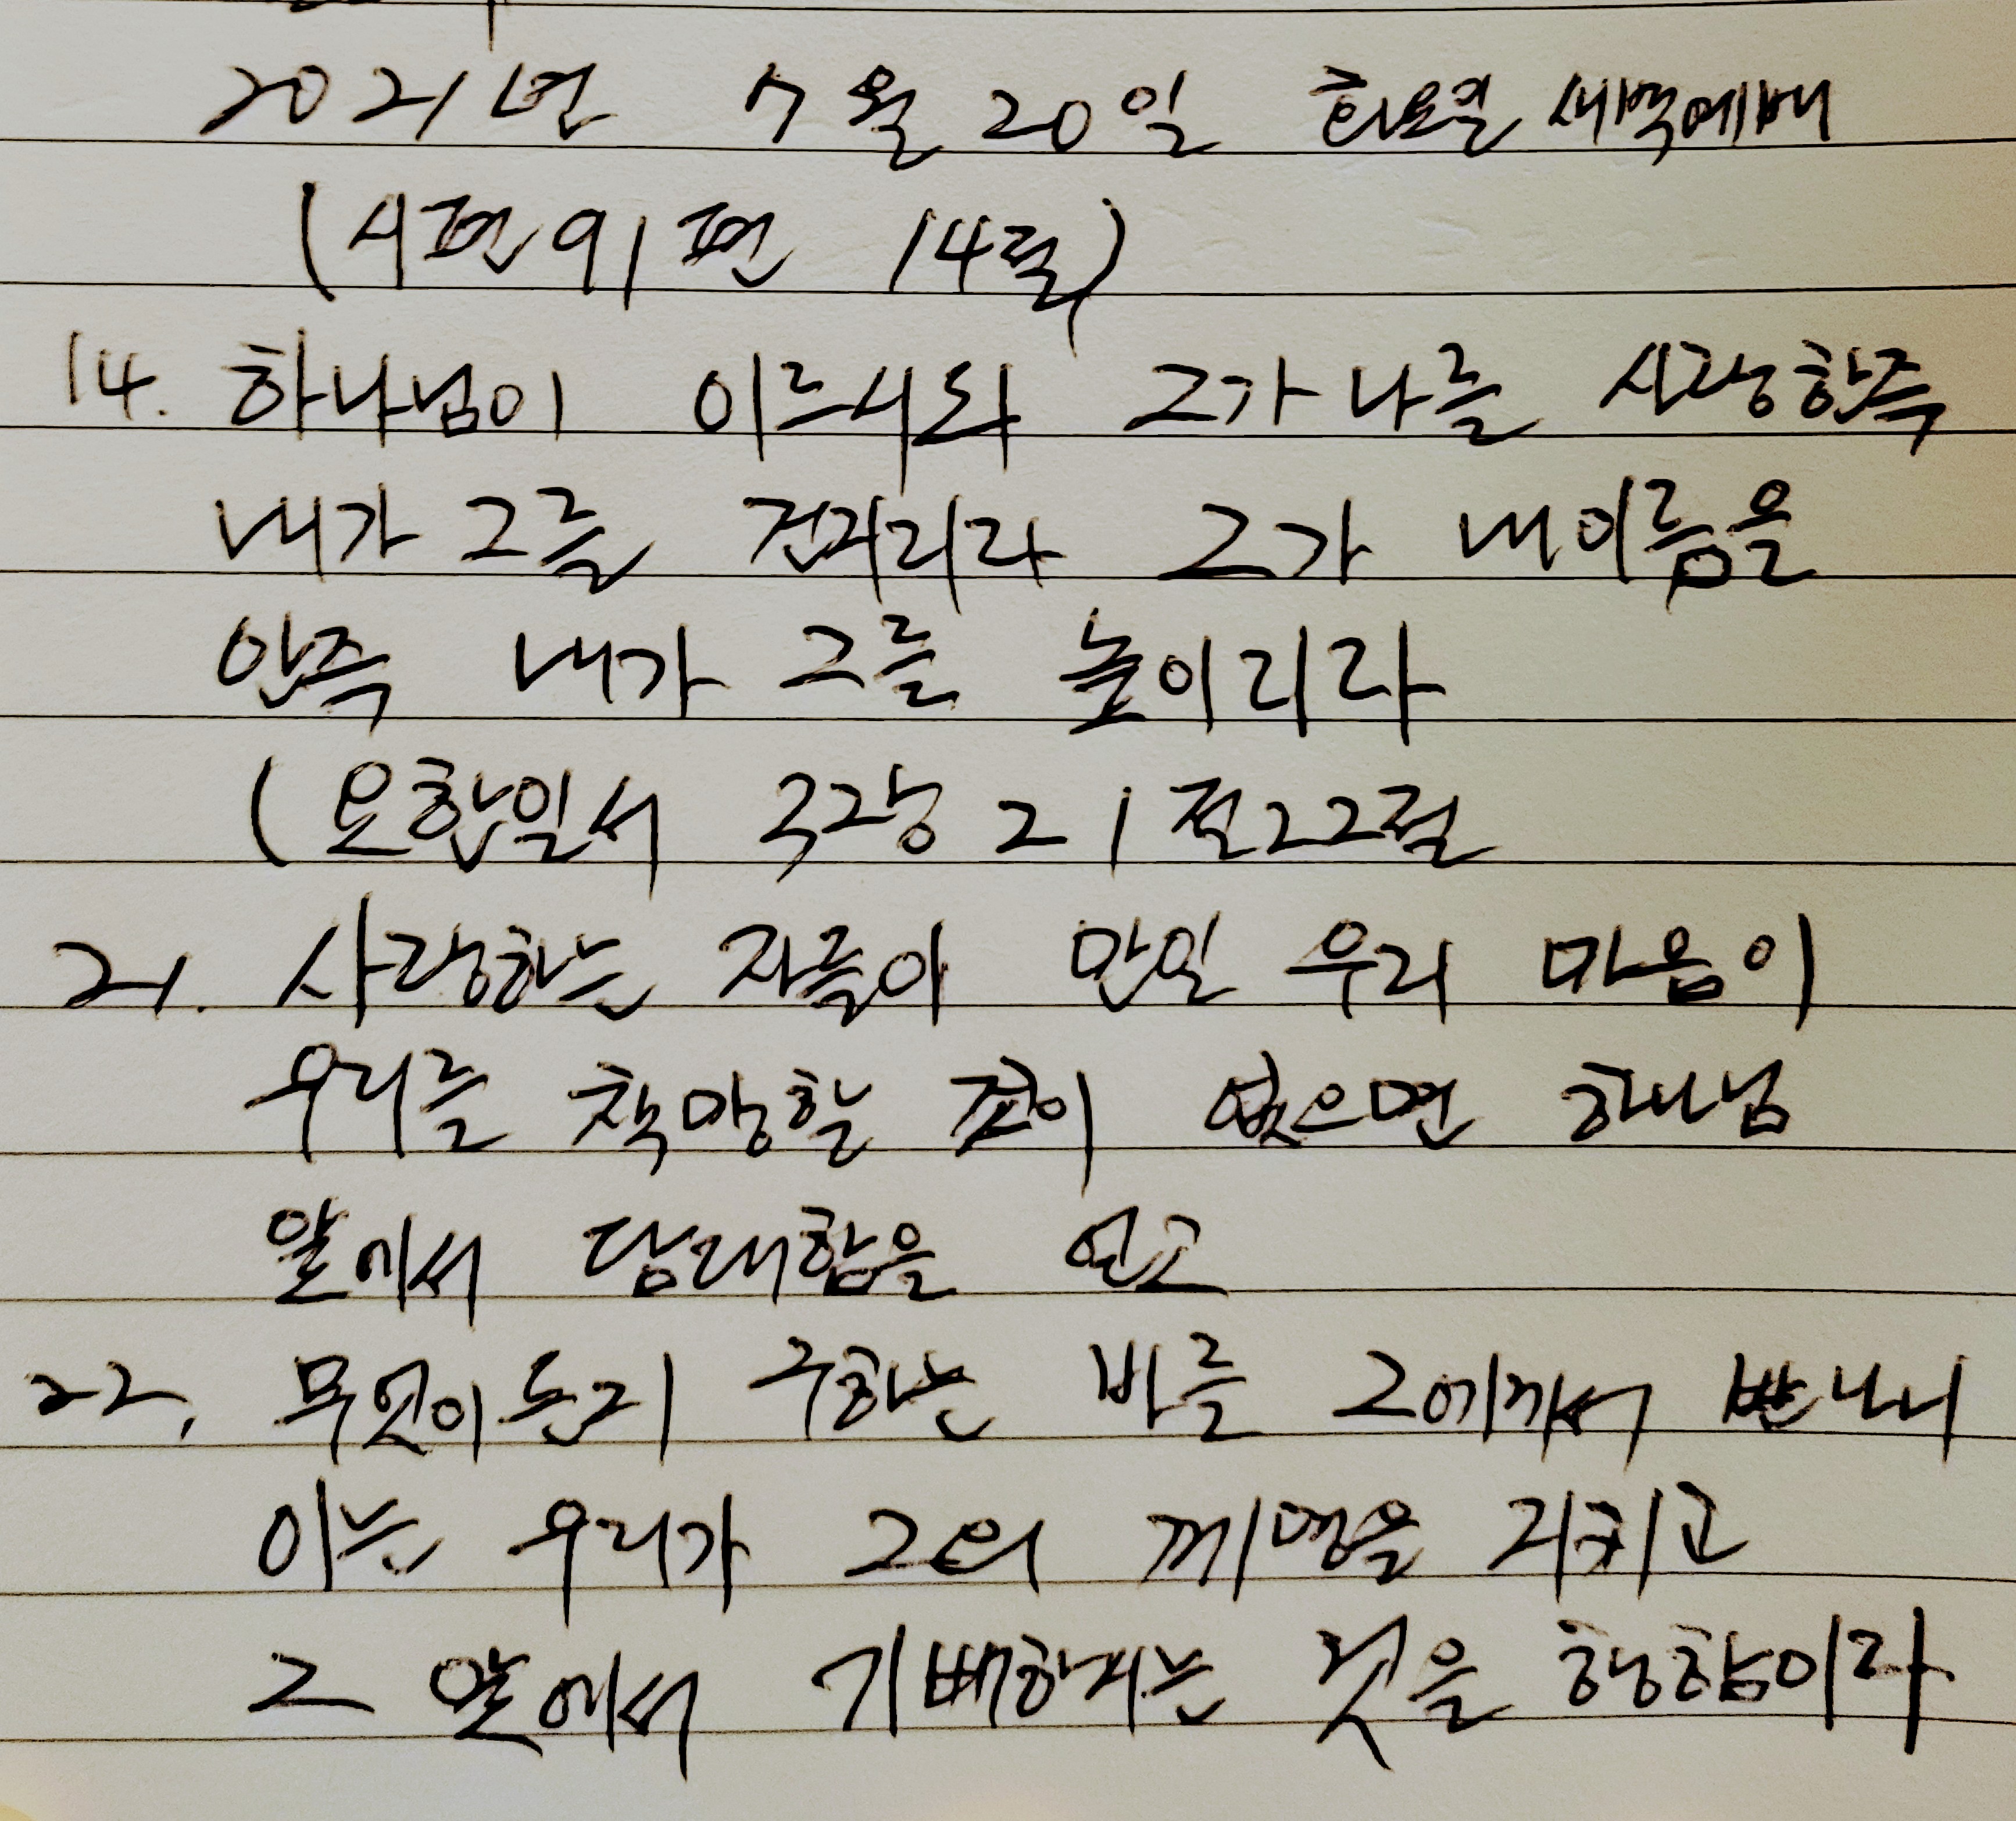 2021년 7월 20일 화요일 새벽예배
(시편 91편 14절)
14. 하나님이 이르시되 그가 나를 사랑한즉
내가 그를 건지리라 그가 내이름을
안즉 내가 그를 높이리라
(요한일서 3장 21절22절
21. 사랑하는 자들아 만일 우리 마음이
우리를 책망할 것이 없으면 하나님
앞에서 담대함을 얻고
22. 무엇이든지 구하는 바를 그에게서 받나니
이는 우리가 그의 계명을 지키고
그 앞에서 기뻐하시는 것을 행함이라